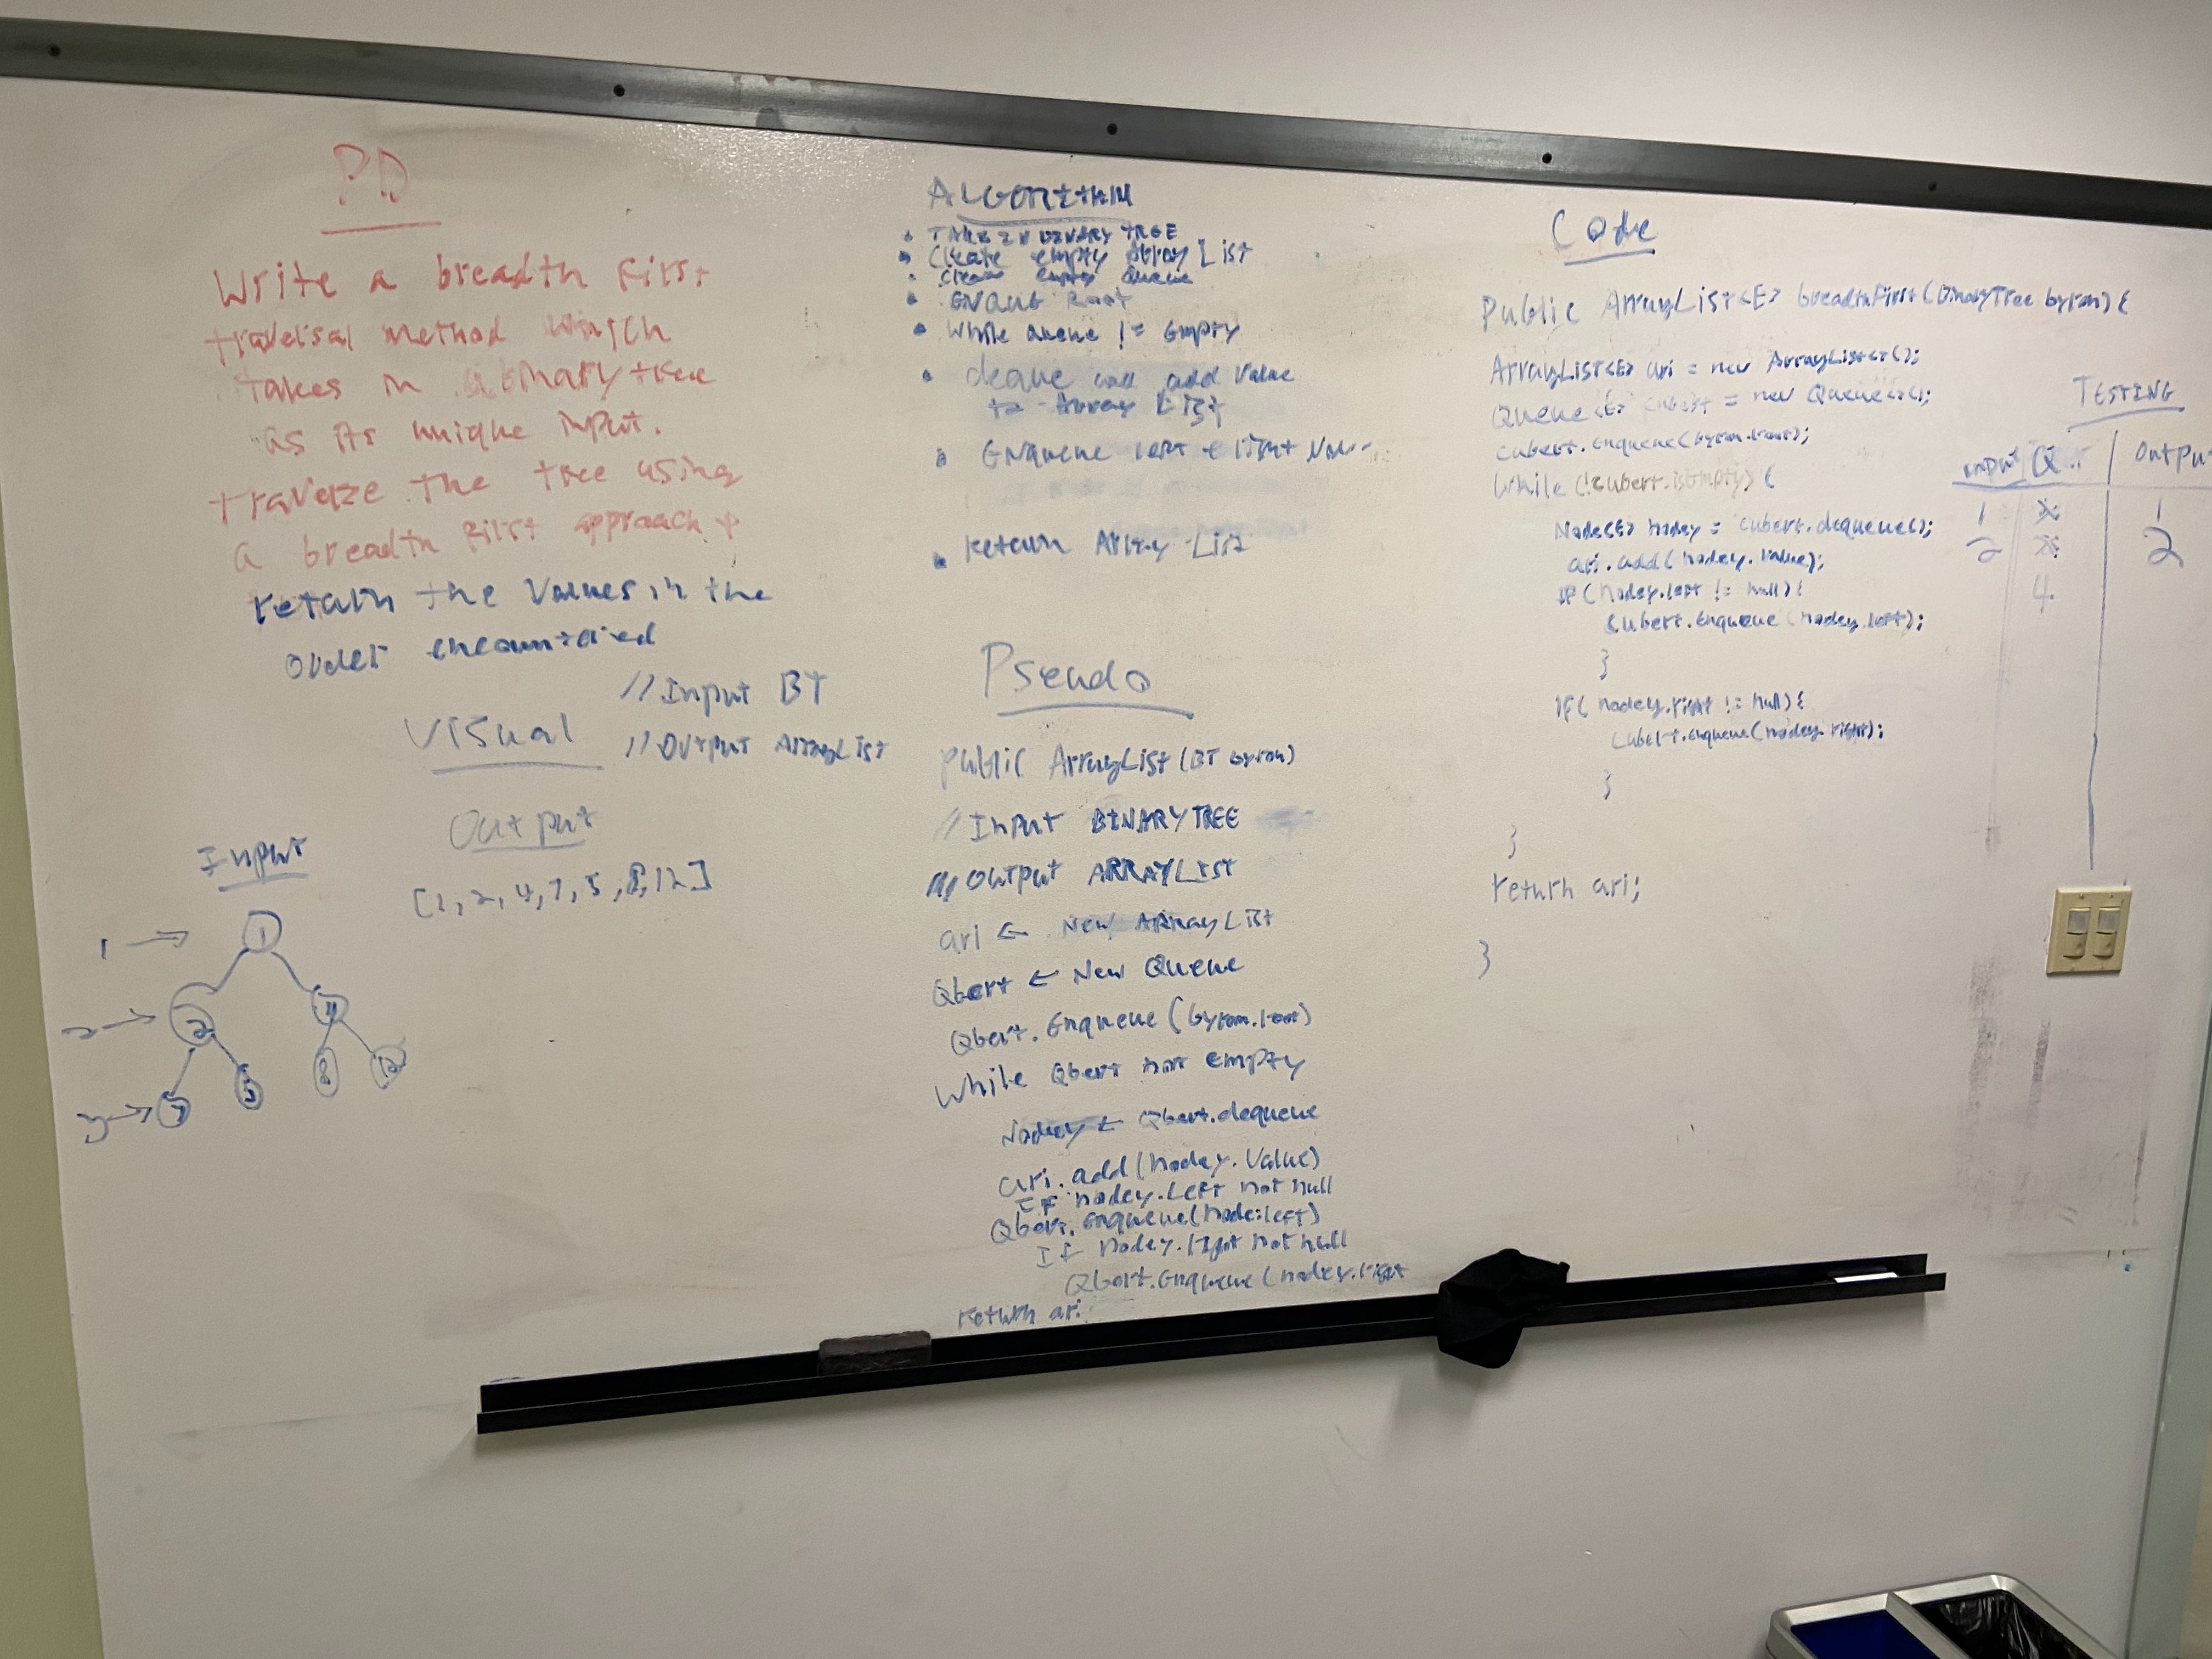 PD
Write a breadth first
traversal method which
takes in a binary tree
as its unique input.
traverse the tree using
a breadth first approach +
return the values in the
order encountered
Visual
//Input BT
//Output ArrayList
Input
Output
[1, 2, 4, 7, 5, 8, 12]
1
1
2
2
4
3
7
5
8
12
ALGORITHM
TAKE IN BINARY TREE
Create empty Array List
Create empty Queue
ENQUE Root
While Queue != Empty
deque add Value
to Array List
Enqueue left + right
Return Array List
Pseudo
public ArrayList (BT byron)
//Input BINARYTREE
// Output ARRAYLIST
ari ← New ArrayList
Qbert ← New Queue
Qbert.Enqueue (byron.root)
While Qbert not empty
Nodey ← Qbert.dequeue
ari.add(nodey.Value)
IF nodey.Left not null
Qbert.Enqueue(node.left)
If nodey.right not null
Qbert.Enqueue(nodey.right
Return ari
Code
Public ArrayList<E> breadthFirst(BinaryTree byron) {
ArrayList<E> ari = new ArrayList<>();
Queue<E> = new Queue<>();
cubert.enqueue(byron.root);
While (!cubert.isEmpty) {
Node<E> nodey = cubert.dequeue();
ari.add(nodey.value);
IF (nodey.left != null) {
cubert.enqueue(nodey.left);
}
IF( nodey.right != null) {
cubert.enqueue(nodey.right);
}
}
return ari;
}
TESTING
input Q Output
1 1
2 2
4